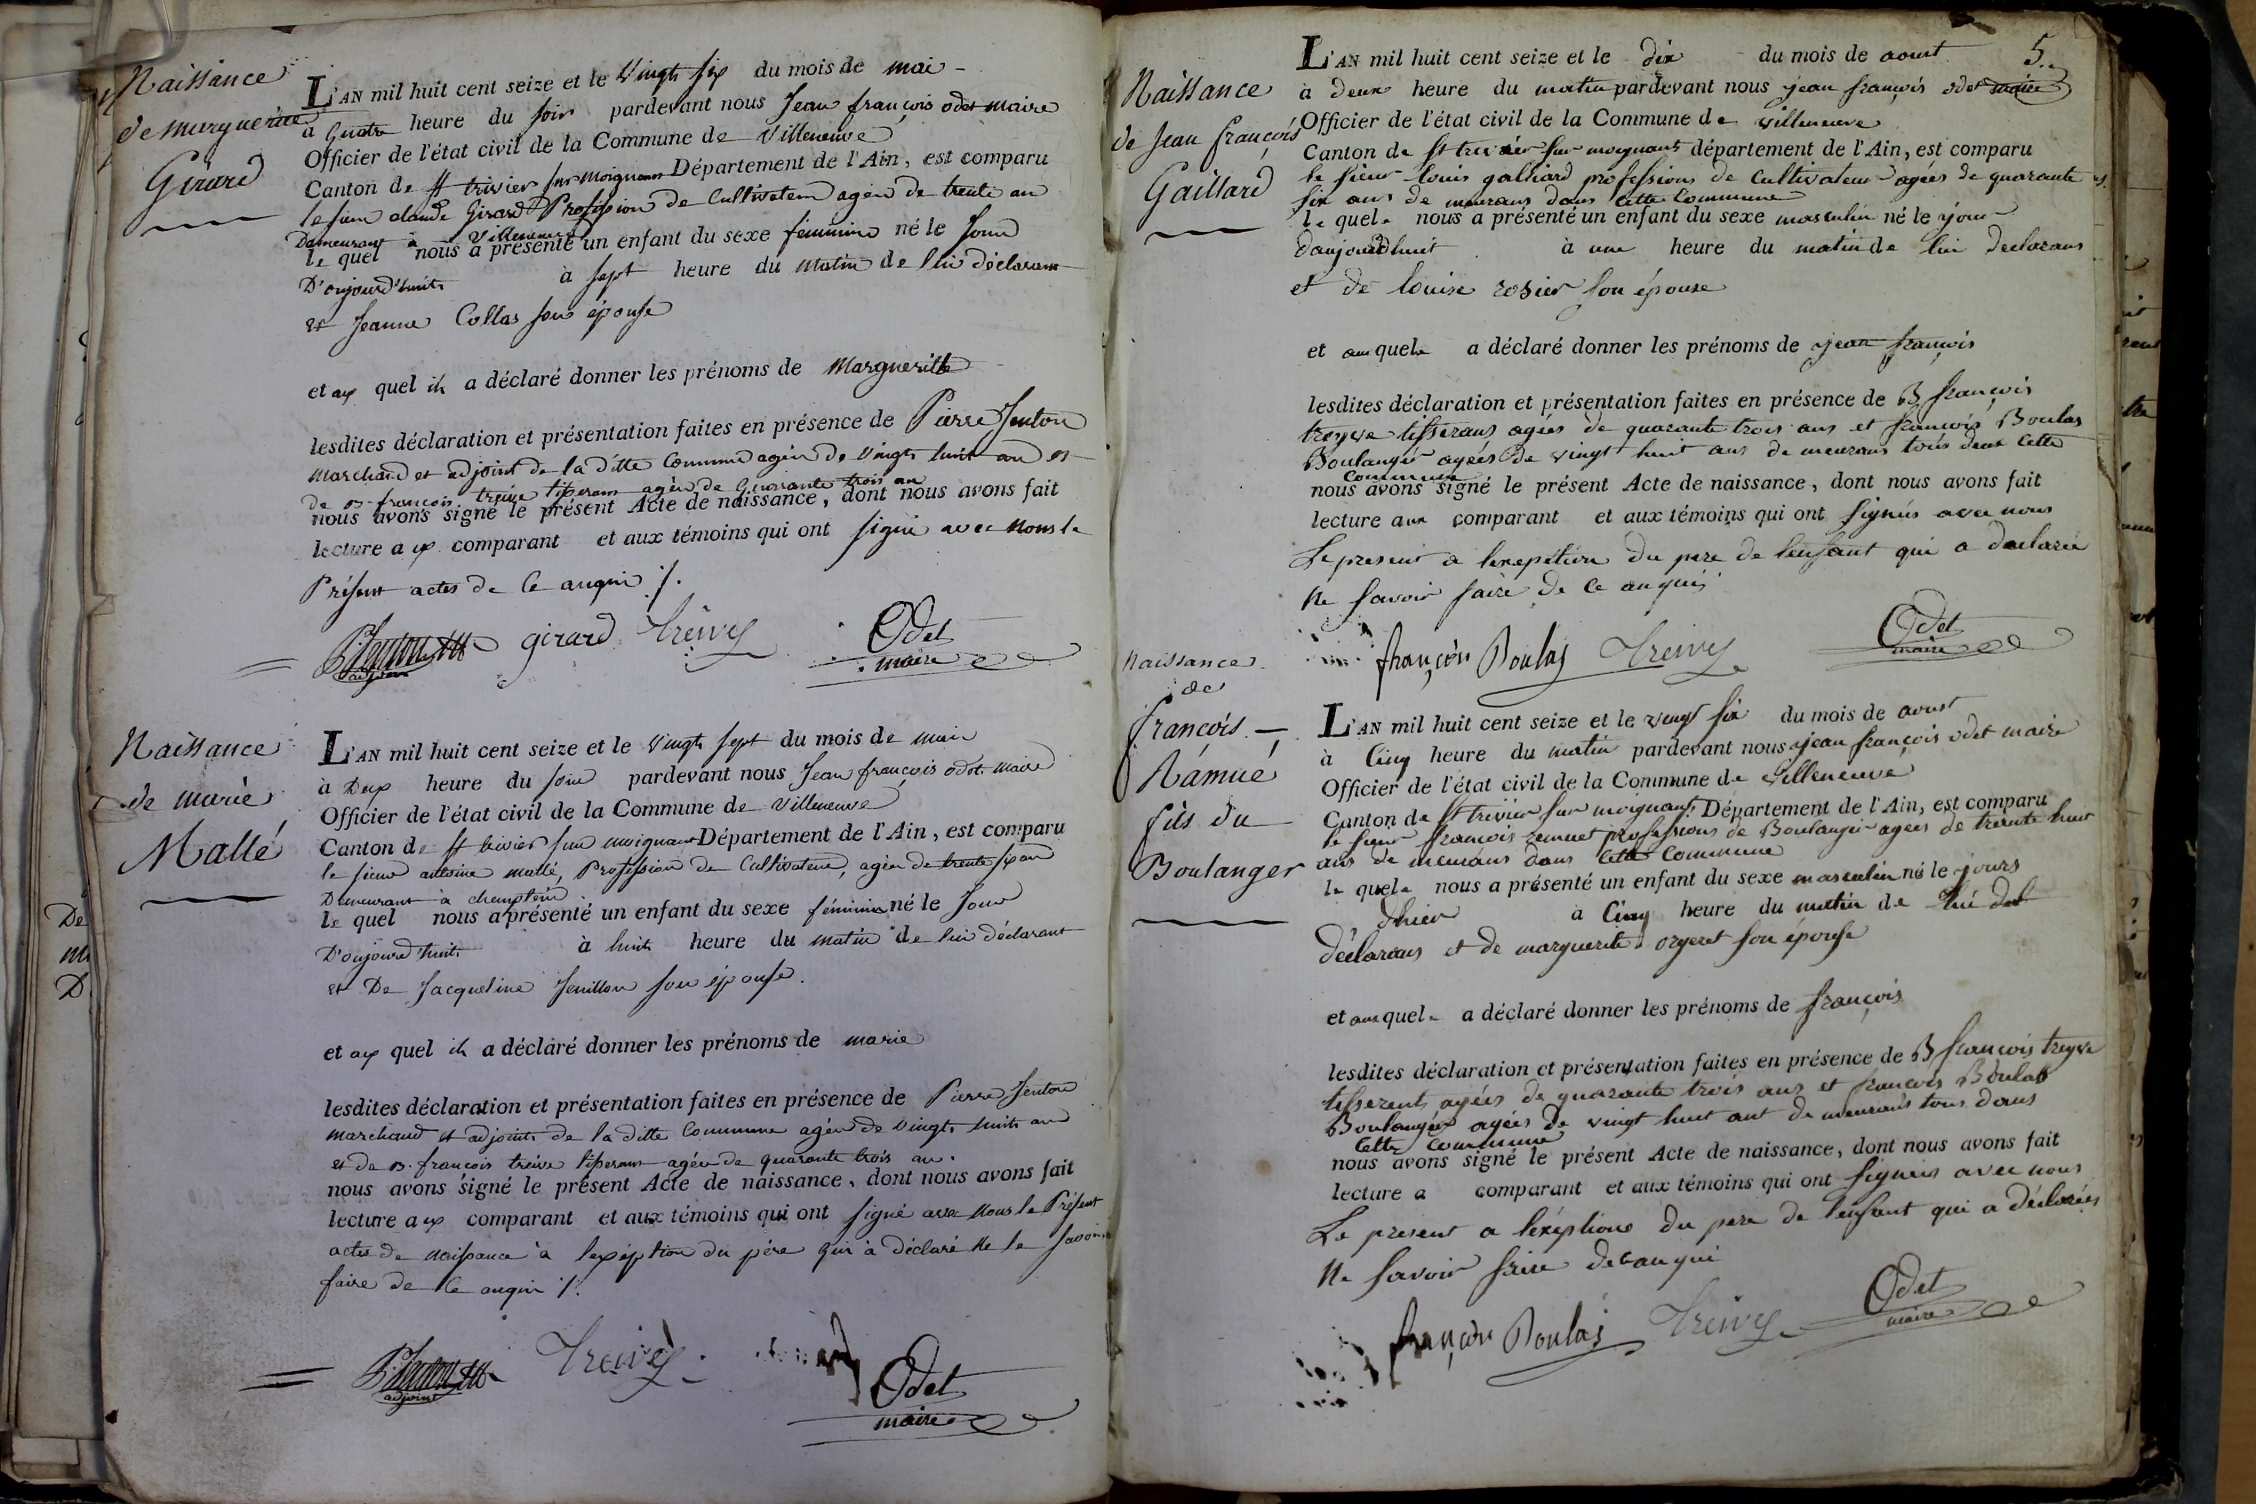 Naissance
de marguerite
Girard
L'AN mil huit cent seize et le vingt six du mois de mai
à quatre heure du soir pardevant nous Jean françois odet maire
Officier de l'état civil de la Commune de Villeneuve
Canton de St trivier sur moignans Département de l'Ain, est comparu
le sieur claude Girard Profession de Cultivateur agée de trente an
Demeurant à Villeneuve
le quel nous a présenté un enfant du sexe feminine né le Jour
D'aujourd'huit à sept heure du matin de lui déclarant
et Jeanne Collas son épouse
et aux quel il a déclaré donner les prénoms de Margueritte
lesdites déclaration et présentation faites en présence de Pierre Jenton
marchand et adjoint de la ditte Commune agée de vingt huit an et
de B. françois treive tiseran agée de quarante trois an
nous avons signé le présent Acte de naissance, dont nous avons fait
lecture aux comparant et aux témoins qui ont signé avec nous le
Présent actes de Ce anquis /.
adjoint girard treive Odet
maire
Naissance
de marie
Mallé
L'AN mil huit cent seize et le vingt sept du mois de mai
à Deux heure du soir pardevant nous Jean françois odet maire
Officier de l'état civil de la Commune de Villeneuve
Canton de St trivier sur moignans Département de l'Ain, est comparu
le sieur antoine mallé, Profession de Cultivateur, agée de trente six an
Demeurant à
le quel nous a présenté un enfant du sexe féminin né le Jour
D'aujourd'huit à huit heure du matin de lui déclarant
et De Jacqueline Jenillon son épouse.
et aux quel il a déclaré donner les prénoms de marie
lesdites déclaration et présentation faites en présence de Pierre Jenton
marchand et adjoint de la ditte Commune agée de vingt huit an
et de B. françois treive tiseran agée de quarante trois an.
nous avons signé le présent Acte de naissance, dont nous avons fait
lecture aux comparant et aux témoins qui ont signé avec nous le Présent
actes de naissance à lexéption du père qui à déclaré ne le savoir
faire de Ce anquis /.
adjoint treive Odet
maire
5.
Naissance
de Jean françois
Gaillard
L'AN mil huit cent seize et le dix du mois de aoust
à deux heure du matin pardevant nous jean françois odet maire
Officier de l'état civil de la Commune de villeneuve
Canton de St trivier sur moignans département de l'Ain, est comparu
le sieur louis galliard professions de cultivateur agées de quarante
six ans de meurans dans cette Commune
le quele nous a présenté un enfant du sexe masculin né le jour
daujourdhuit à une heure du matin de lui declarans
et de louise rosier son épouse
et auxquele a déclaré donner les prénoms de jean françois
lesdites déclaration et présentation faites en présence de B françois
treyve tisserans agées de quarante trois ans et françois Boulas
Boulanger agées de vingt huit ans de meurans tous deux cette
Commune
nous avons signé le présent Acte de naissance, dont nous avons fait
lecture aux comparant et aux témoins qui ont signés avec nous
Le present a lexeption du pere de lenfant qui a declarée
Ne savoir faire de ce anquis
françois Boulas treive Odet
maire
Naissance
de
françois
Ramué
fils du
Boulanger
L'AN mil huit cent seize et le vingt six du mois de aoust
à Cinq heure du matin pardevant nous jean françois odet maire
Officier de l'état civil de la Commune de Villeneuve
Canton de St trivier sur moignans Département de l'Ain, est comparu
le sieur françois remuet professions de Boulanger agées de trente huit
ans de meurans dans cette Commune
le quele nous a présenté un enfant du sexe masculin né le jours
dhier à Cinq heure du matin de lui del
déclarans et de marguerite orgeret son épouse
et auxquele a déclaré donner les prénoms de françois
lesdites déclaration et présentation faites en présence de B françois treyve
tisserent agées de quarante trois ans et françois Boulas
Boulanger agées de vingt huit ant de meurans tous dans
Cette Commune
nous avons signé le présent Acte de naissance, dont nous avons fait
lecture a comparant et aux témoins qui ont signés avec nous
Le present a lexéptions du pere de lenfant qui a déclarées
Ne savoir faire de ce anqui
françois Boulas treive Odet
maire